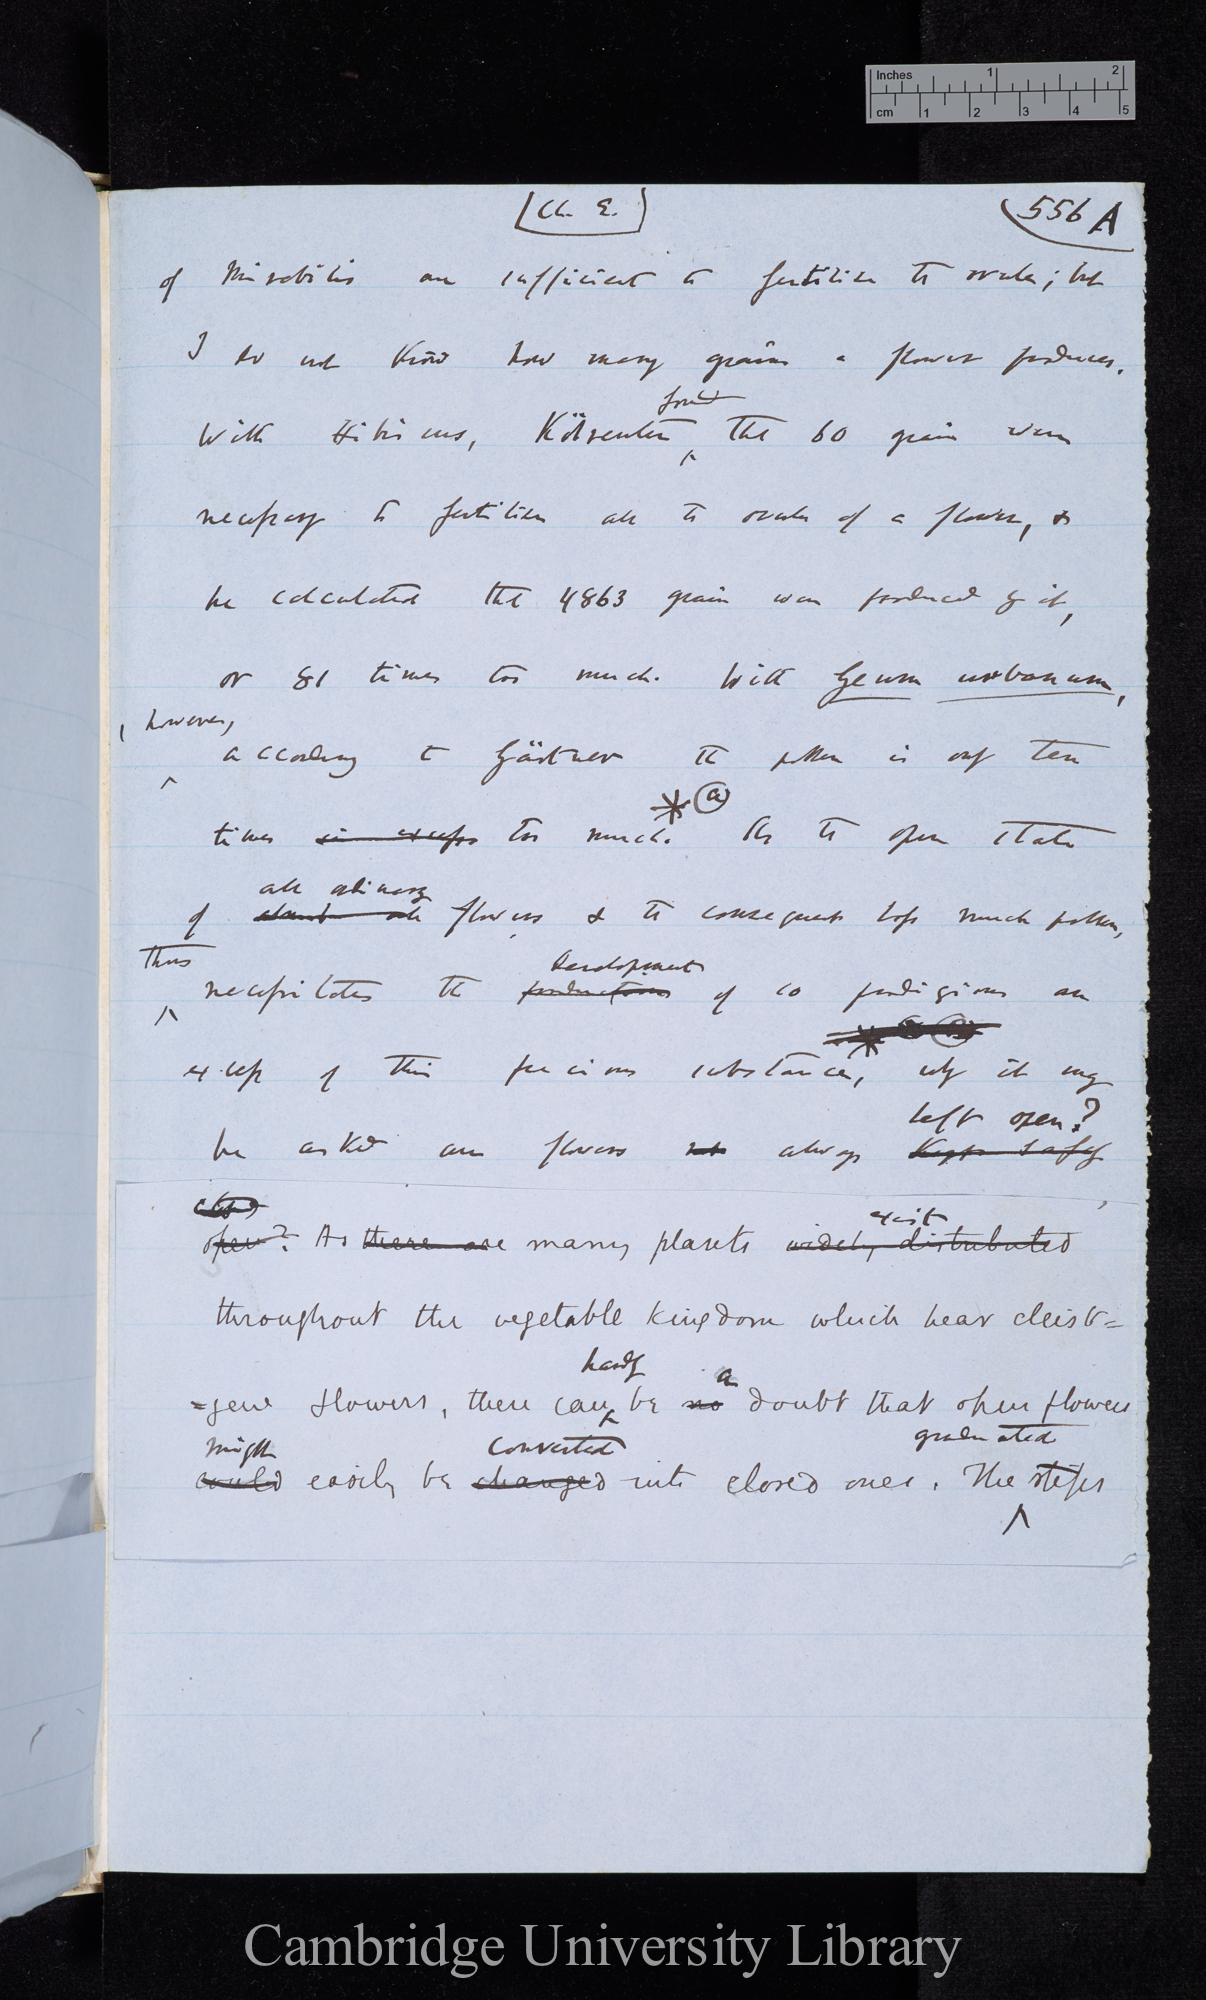 Inches 1 2
cm 1 2 3 4 5
(Ch. E.)
556 A
of Mirabilis are sufficient to fertilise the ovules; but
I do not know how many grains a flower produces.
found
With Hibiscus, Kölreuter that 60 grains were
necessary to fertilise all the ovules of a flower, &
he calculated that 4863 grains were produced by it,
or 81 times too much. With Geum urbanum,
, however,
according to Gärtner the pollen is only ten
* (a)
times in excess too much. As the open state
all ordinary
of almost all flowers & the consequent loss much pollen,
thus
Development
necessitates the production of so prodigious an
*
excess of this precious substance, why it may
left open?
be asked are flowers not always kept safely
closed
exist
open? As there are many plants widely distributed
throughout the vegetable kingdom which bear cleist=
hardly a
=gene flowers, there can be no doubt that open flowers
might converted graduated
could easily be changed into closed ones. The steps
Cambridge University Library